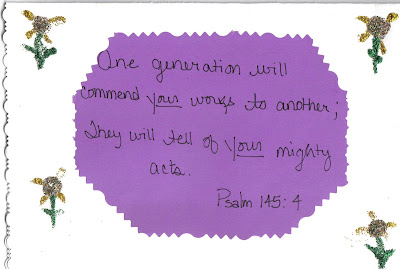 One generation will
commend your works to another;
They will tell of your mighty
acts.
Psalm 145:4